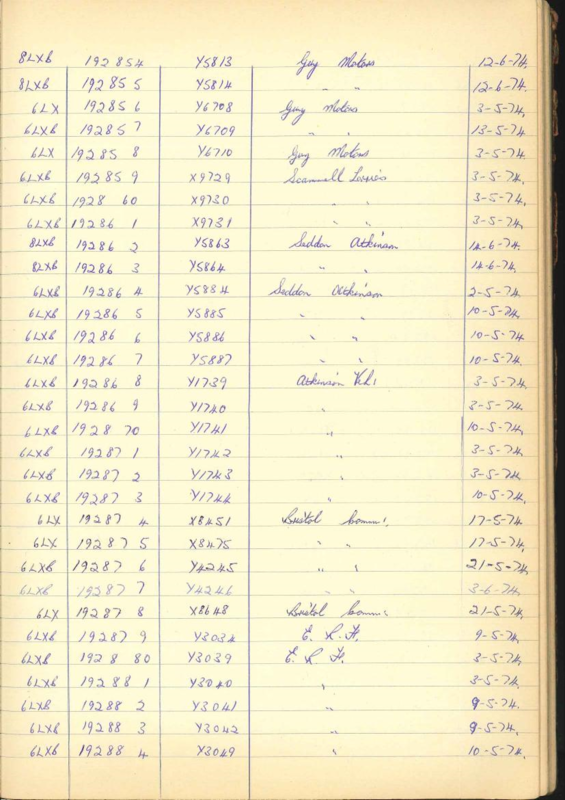 8LXB 192854 Y5813 Guy Motors 12-6-74
8LXB 192855 Y5814 " " 12-6-74
6LX 192856 Y6708 Guy Motors 3-5-74
6LXB 192857 Y6709 " " 13-5-74
6LX 192858 Y6710 Guy Motors 3-5-74
6LXB 192859 X9729 Scammell Lorries 3-5-74
6LXB 192860 X9730 " " 3-5-74
6LXB 192861 X9731 " " 3-5-74
8LXB 192862 Y5863 Seddon Atkinson 14-6-74
8LXB 192863 Y5864 " " 14-6-74
6LXB 192864 Y5884 Seddon Atkinson 2-5-74
6LXB 192865 Y5885 " " 10-5-74
6LXB 192866 Y5886 " " 10-5-74
6LXB 192867 Y5887 " " 10-5-74
6LXB 192868 Y1739 Atkinson Veh: 3-5-74
6LXB 192869 Y1740 " 3-5-74
6LXB 192870 Y1741 " 10-5-74
6LXB 192871 Y1742 " 3-5-74
6LXB 192872 Y1743 " 3-5-74
6LXB 192873 Y1744 " 10-5-74
6LX 192874 X8451 Bristol Comm: 17-5-74
6LX 192875 X8475 " " 17-5-74
6LXB 192876 Y4245 " " 21-5-74
6LXB 192877 Y4246 " " 3-6-74
6LX 192878 X8648 Bristol Comm: 21-5-74
6LXB 192879 Y3034 E. R. F. 9-5-74
6LXB 192880 Y3039 E. R. F. 3-5-74
6LXB 192881 Y3040 " 3-5-74
6LXB 192882 Y3041 " 9-5-74
6LXB 192883 Y3042 " 9-5-74
6LXB 192884 Y3049 " 10-5-74